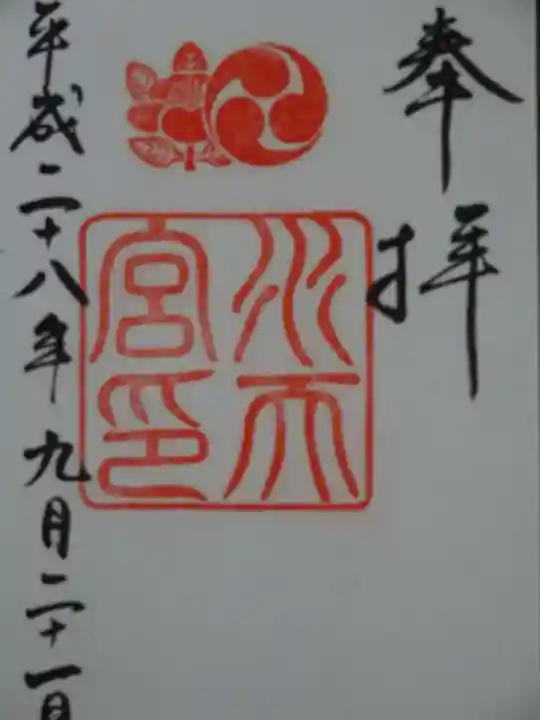 奉拝
水天宮印
平成二十八年九月二十一日